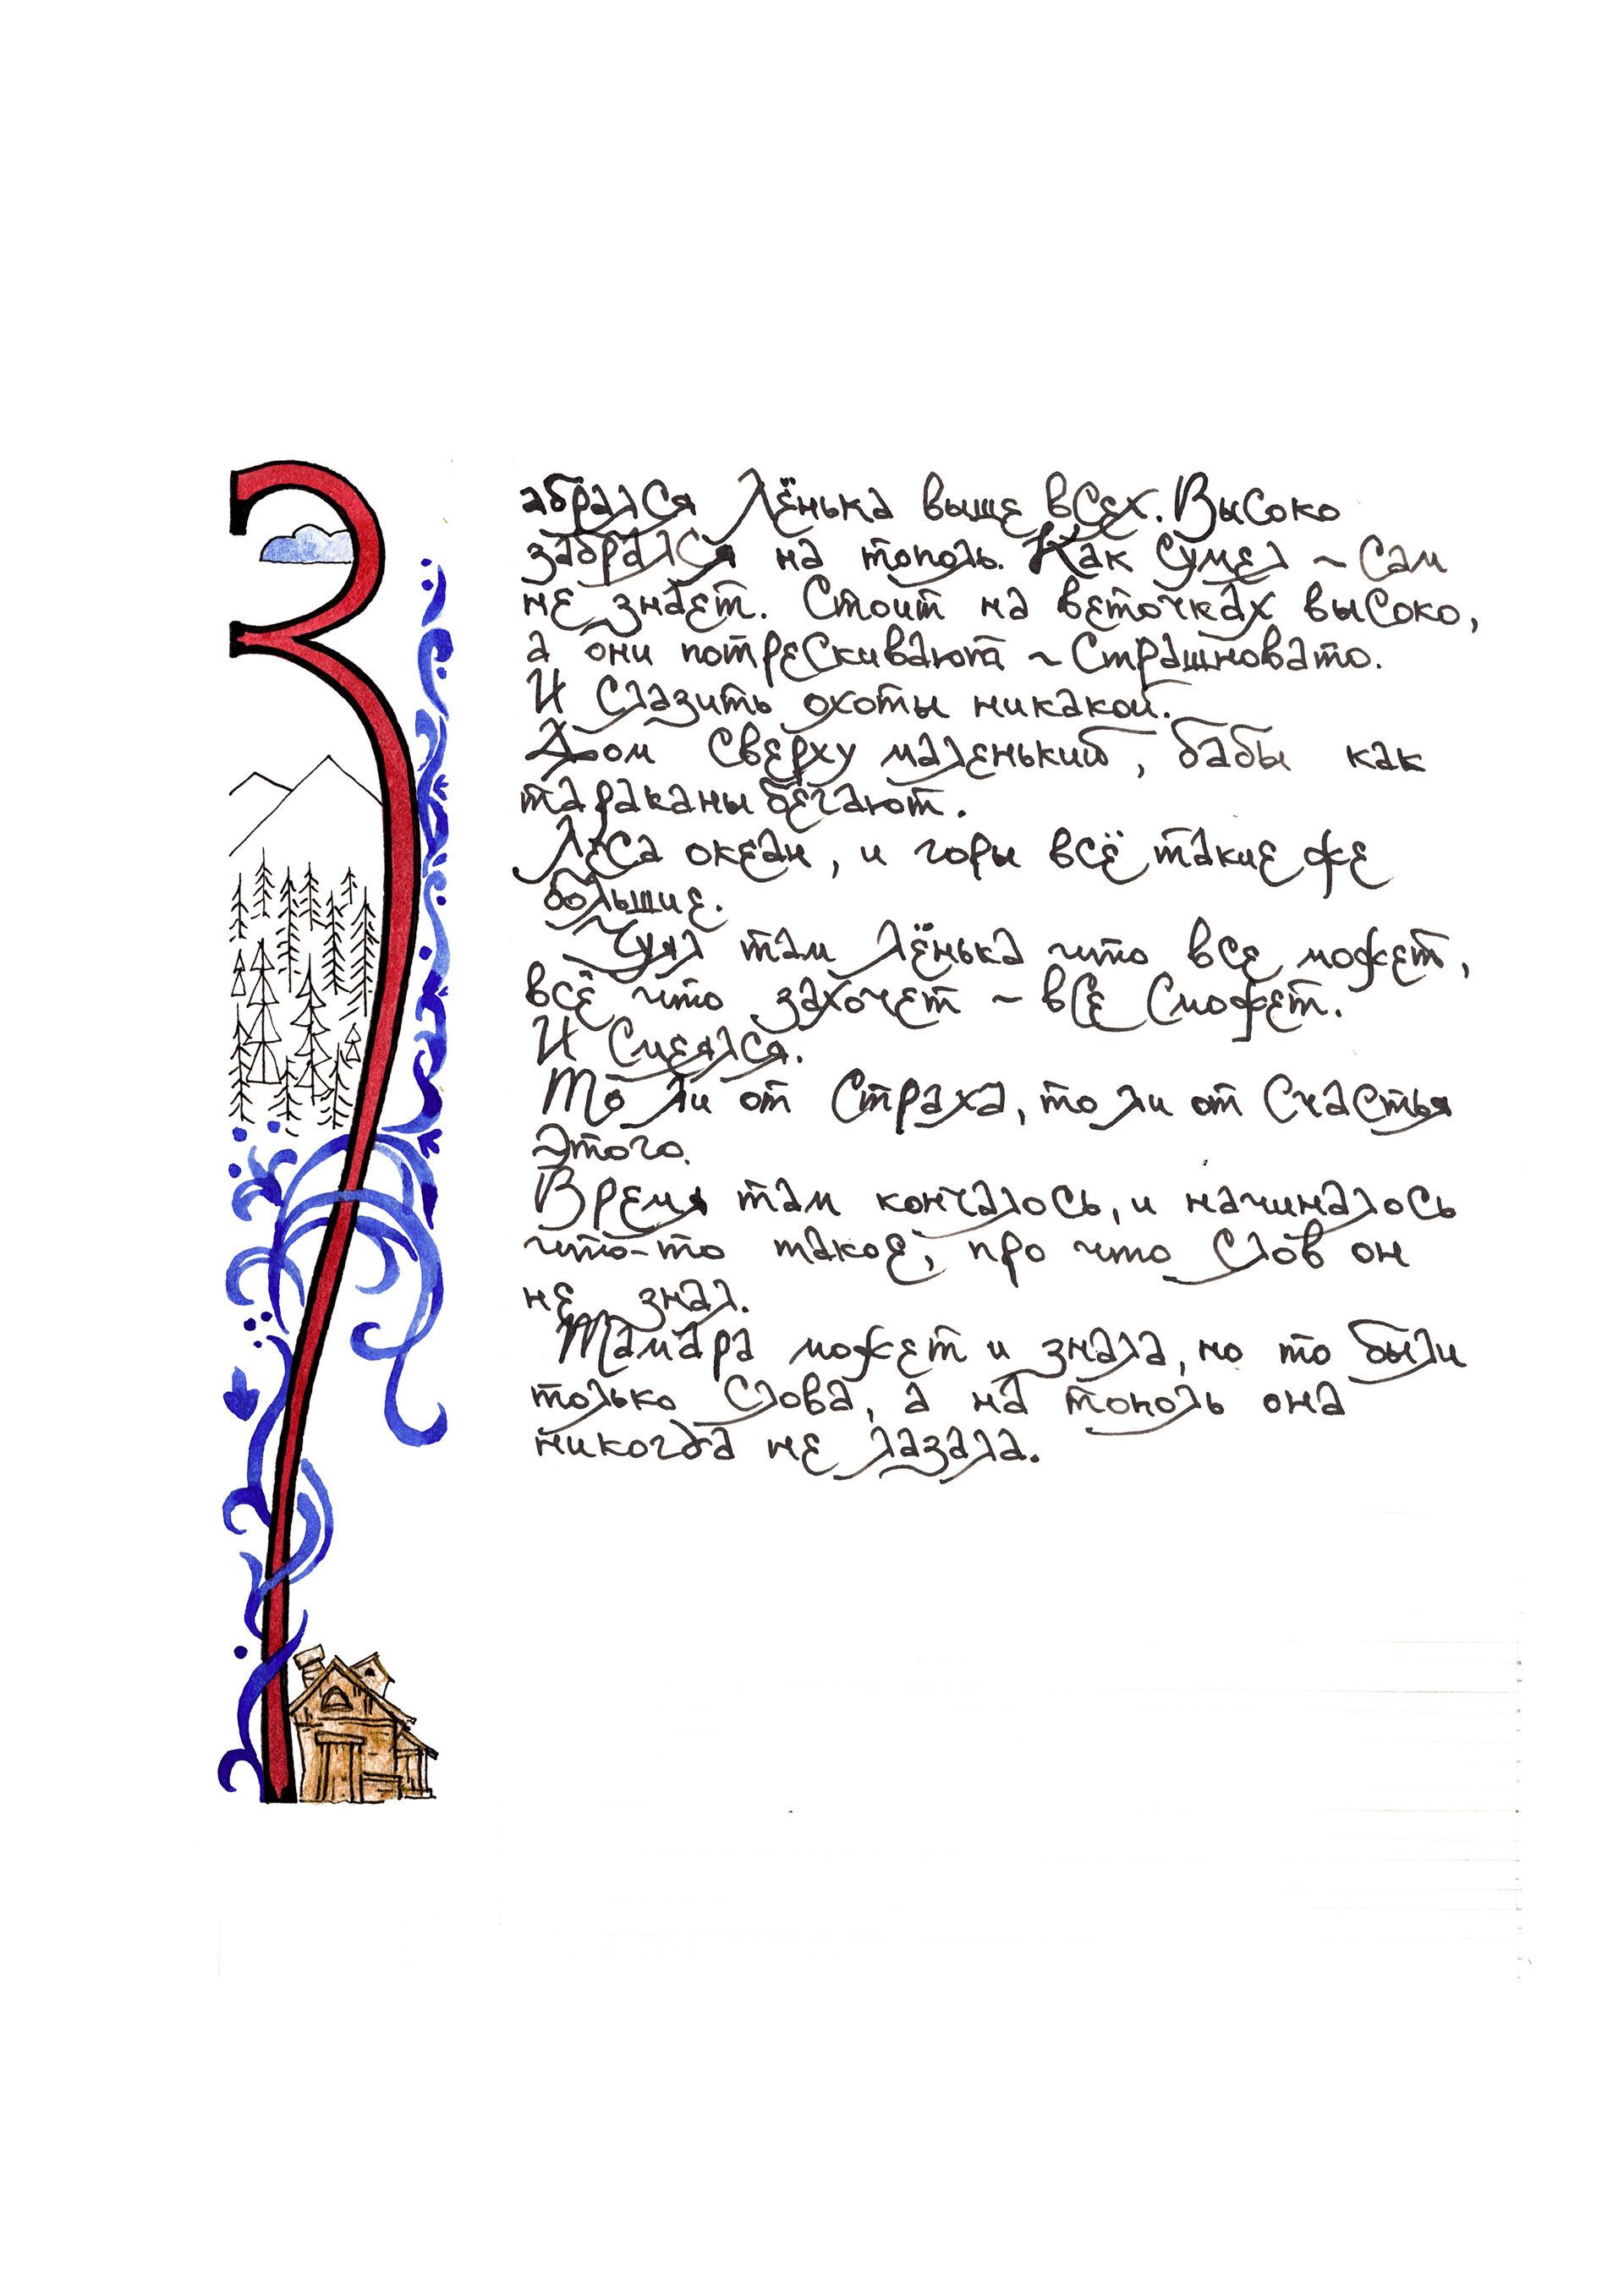 Забрался Лёнька выше всех. Высоко
забрался на тополь. Как сумел ~ Сам
не знает. Стоит на веточках высоко,
а они потрескивают ~ Страшновато.
И Слазить охоты никакой.
Дом Сверху маленький, бабы как
тараканы бегают.
Леса океан, и горы всё такие же
большие.
Чуял там Лёнька что все может,
всё что захочет ~ все Сможет.
И Смеялся.
То ли от Страха, то ли от Счастья
этого.
Время там кончалось, и начиналось
что-то такое, про что Слов он
не знал.
Тамара может и знала, но то были
только Слова, а на тополь она
никогда не лазала.